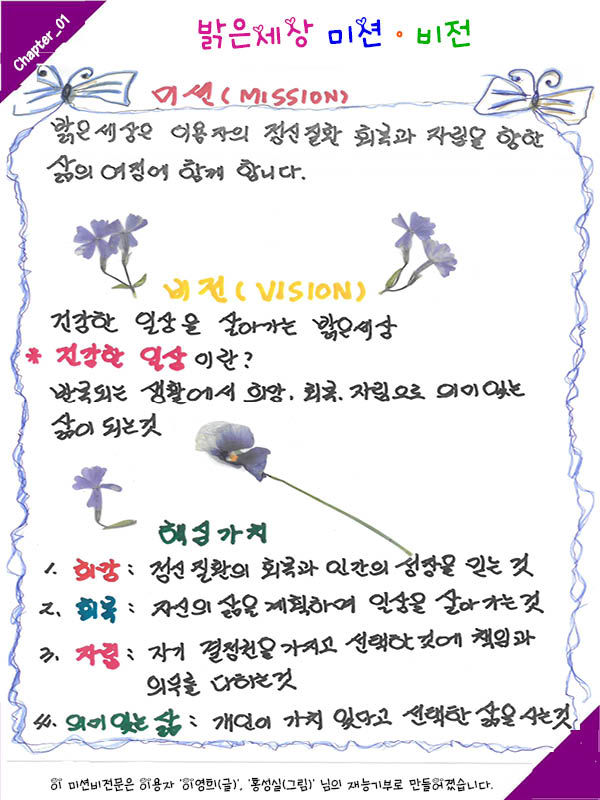 Chapter_01
밝은세상 미션 · 비전
미션(MISSION)
밝은세상은 이용자의 정신질환 회복과 자립을 향한
삶의 여정에 함께 합니다.
비전(VISION)
건강한 일상을 살아가는 밝은세상
* 건강한 일상이란?
반복되는 생활에서 희망, 회복, 자립으로 의미있는
삶이 되는것
핵심가치
1. 희망 : 정신질환의 회복과 인간의 성장을 믿는 것
2. 회복 : 자신의 삶을 계획하며 일상을 살아가는것
3. 자립 : 자기 결정권을 가지고 선택한 것에 책임과
의무를 다하는것
4. 의미있는 삶 : 개인이 가치 있다고 선택한 삶을 사는것
이 미션비전문은 이용자 '이영희(글)', '홍성실(그림)' 님의 재능기부로 만들어졌습니다.